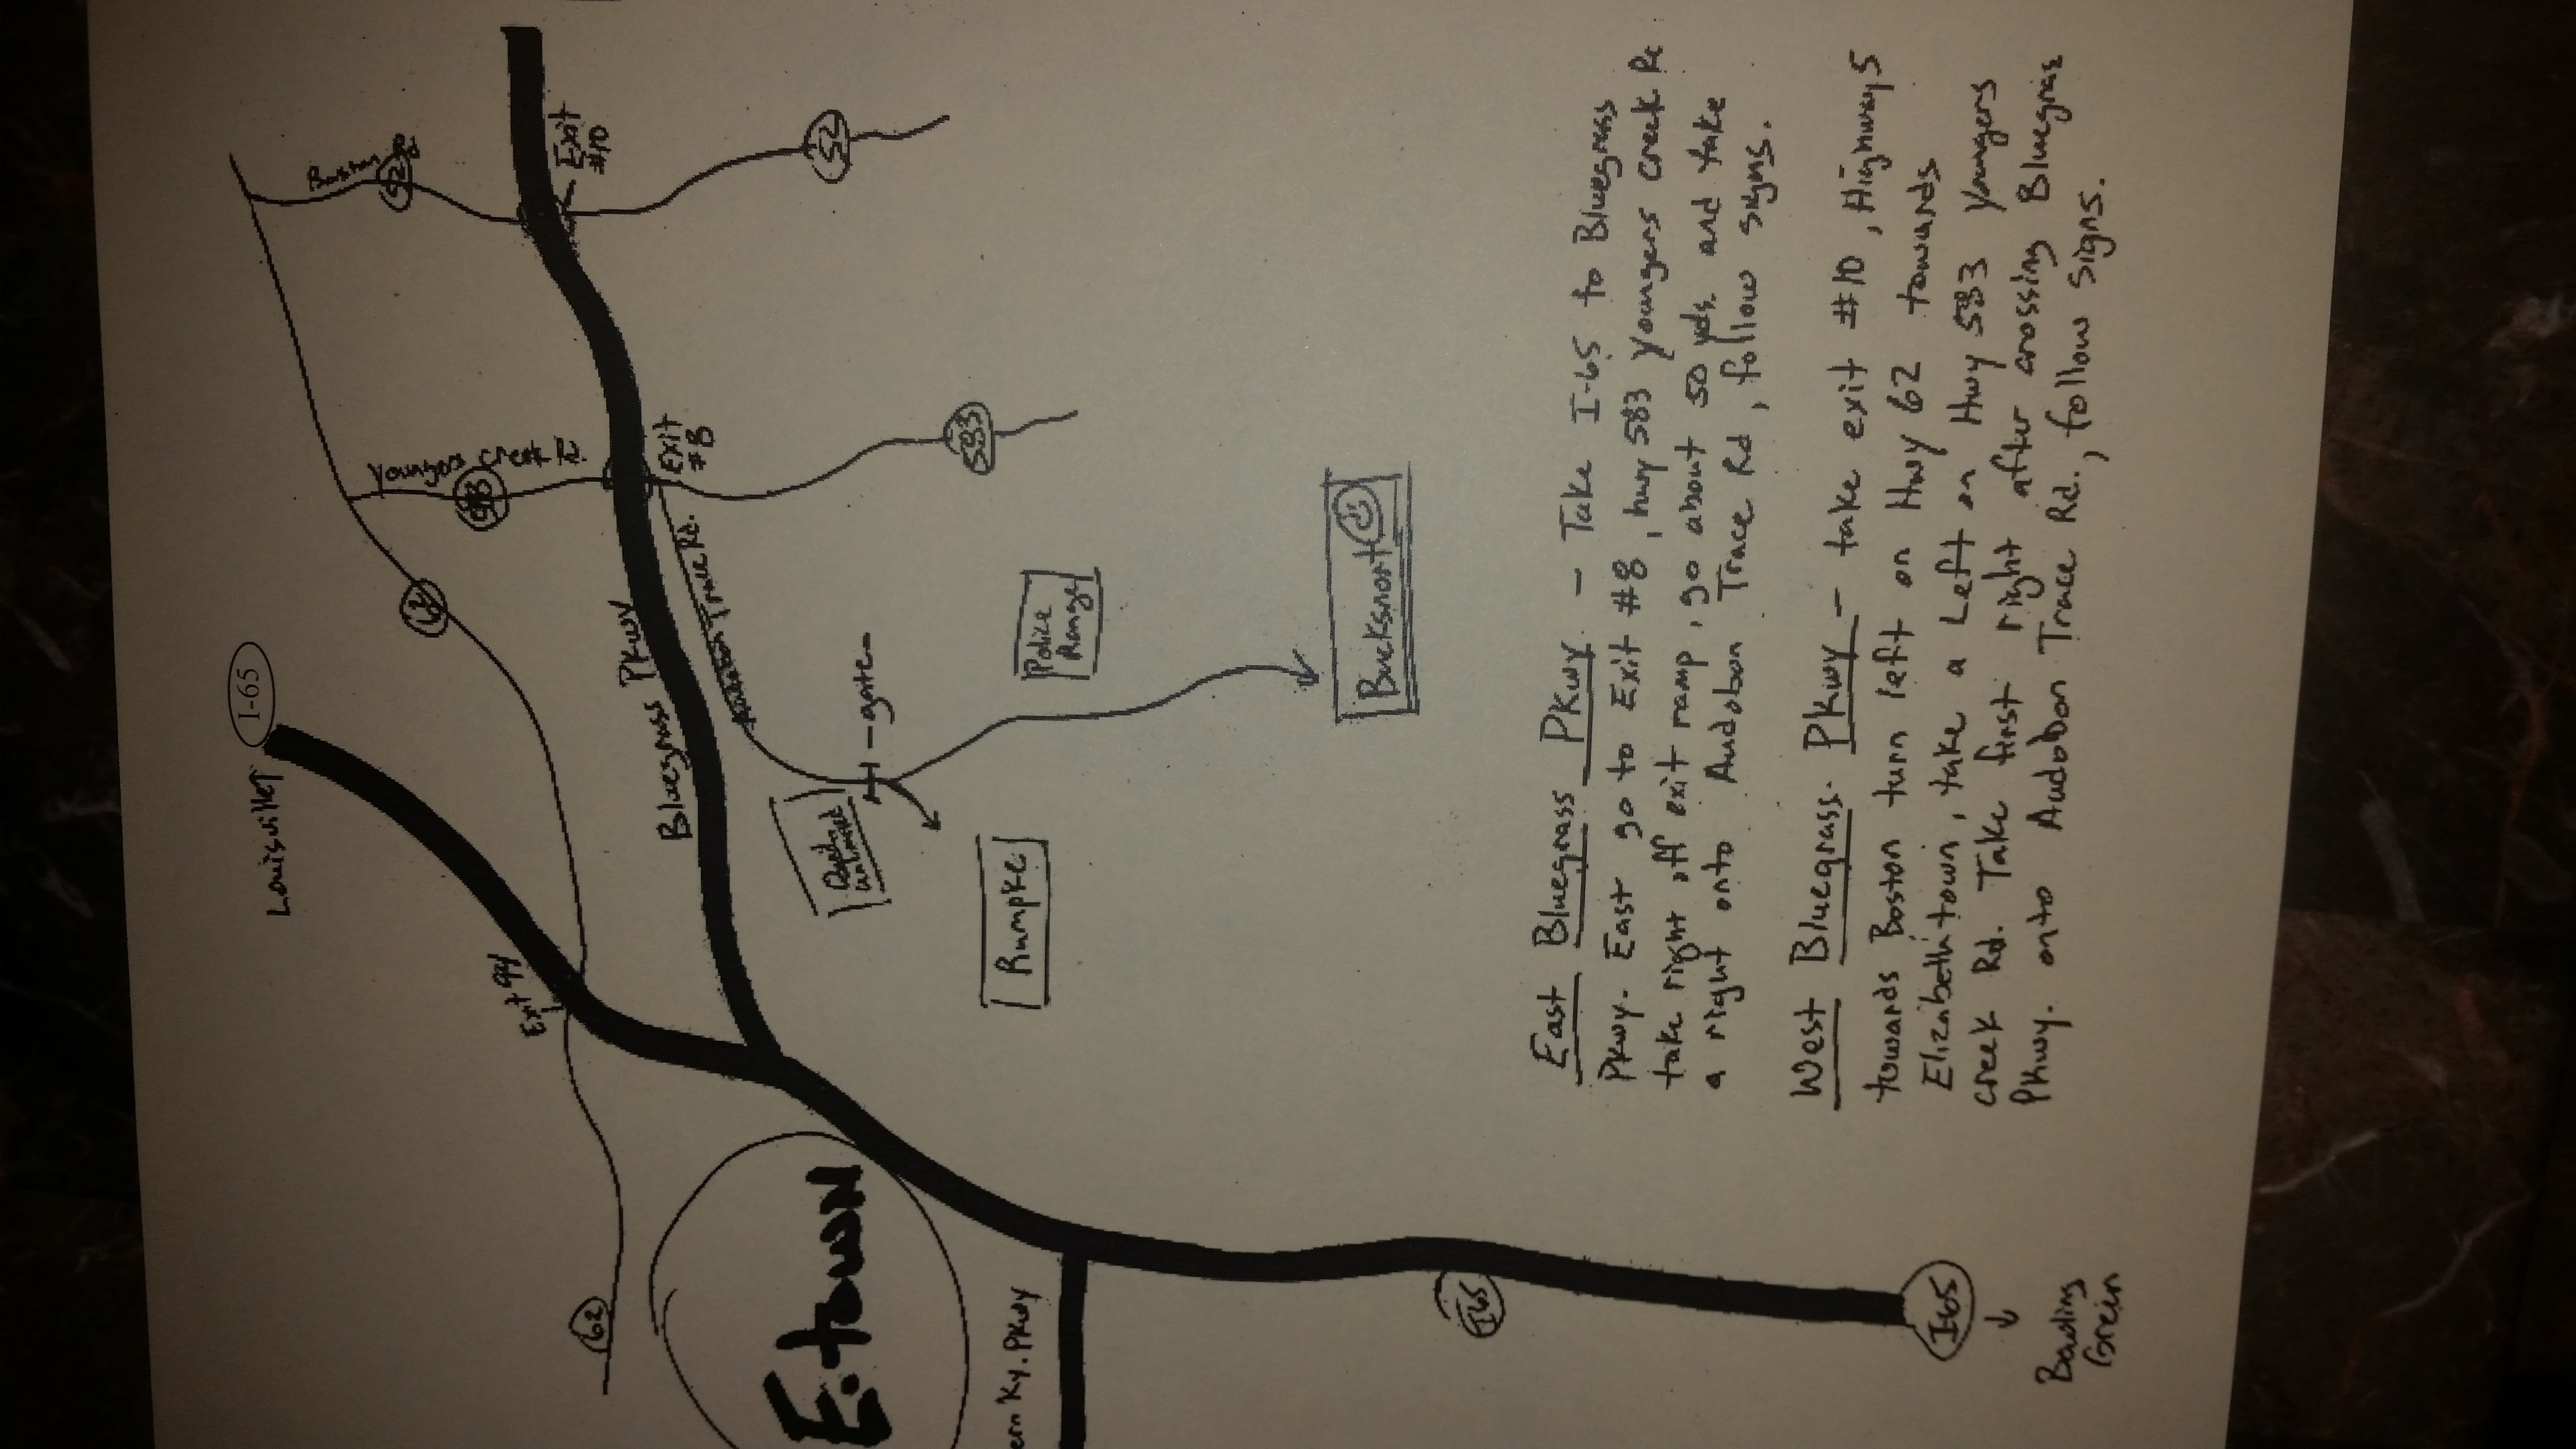 Louisville
I-65
62
Exit 94
62
Youngers Creek Rd.
583
52
Exit
#10
Exit
#8
52
583
Bluegrass Pkwy
Trace Rd.
gate
Police
Range
Rumpke
Bucksnort
E.town
ern Ky. Pkwy
I65
I65
Bowling
Green
East Bluegrass Pkwy - Take I-65 to Bluegrass
Pkwy. East go to Exit #8, hwy 583 Youngers Creek Rd
take right off exit ramp, go about 50 yds. and take
a right onto Audobon Trace Rd, follow signs.
West Bluegrass. Pkwy - take exit #10, Highway 5
towards Boston turn left on Hwy 62 towards
Elizabethtown, take a Left on Hwy 583 Youngers
creek Rd. Take first right after crossing Bluegrass
Pkwy. onto Audobon Trace Rd., follow signs.